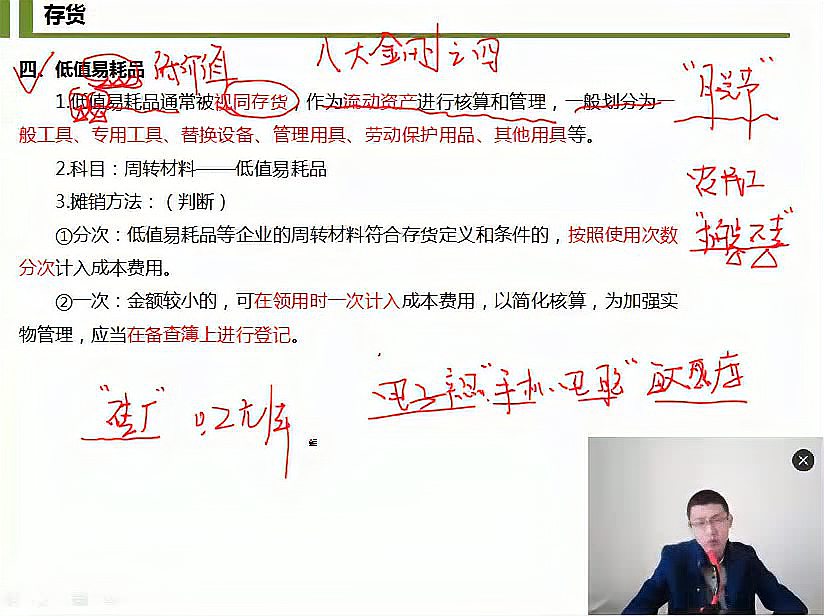 存货
八大金刚之四
四．低值易耗品
1.低值易耗品通常被视同存货，作为流动资产进行核算和管理，一般划分为一
般工具、专用工具、替换设备、管理用具、劳动保护用品、其他用具等。
2.科目：周转材料——低值易耗品
农民工
3.摊销方法：（判断）
①分次：低值易耗品等企业的周转材料符合存货定义和条件的，按照使用次数
分次计入成本费用。
②一次：金额较小的，可在领用时一次计入成本费用，以简化核算，为加强实
物管理，应当在备查簿上进行登记。
"砖厂" 0.2元/库